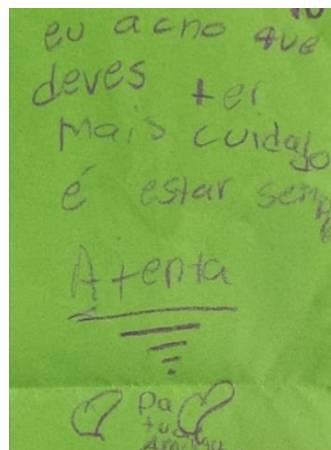 eu acho que
deves ter
Mais cuidado
é estar sempre
Atenta
Da
tua
Amiga